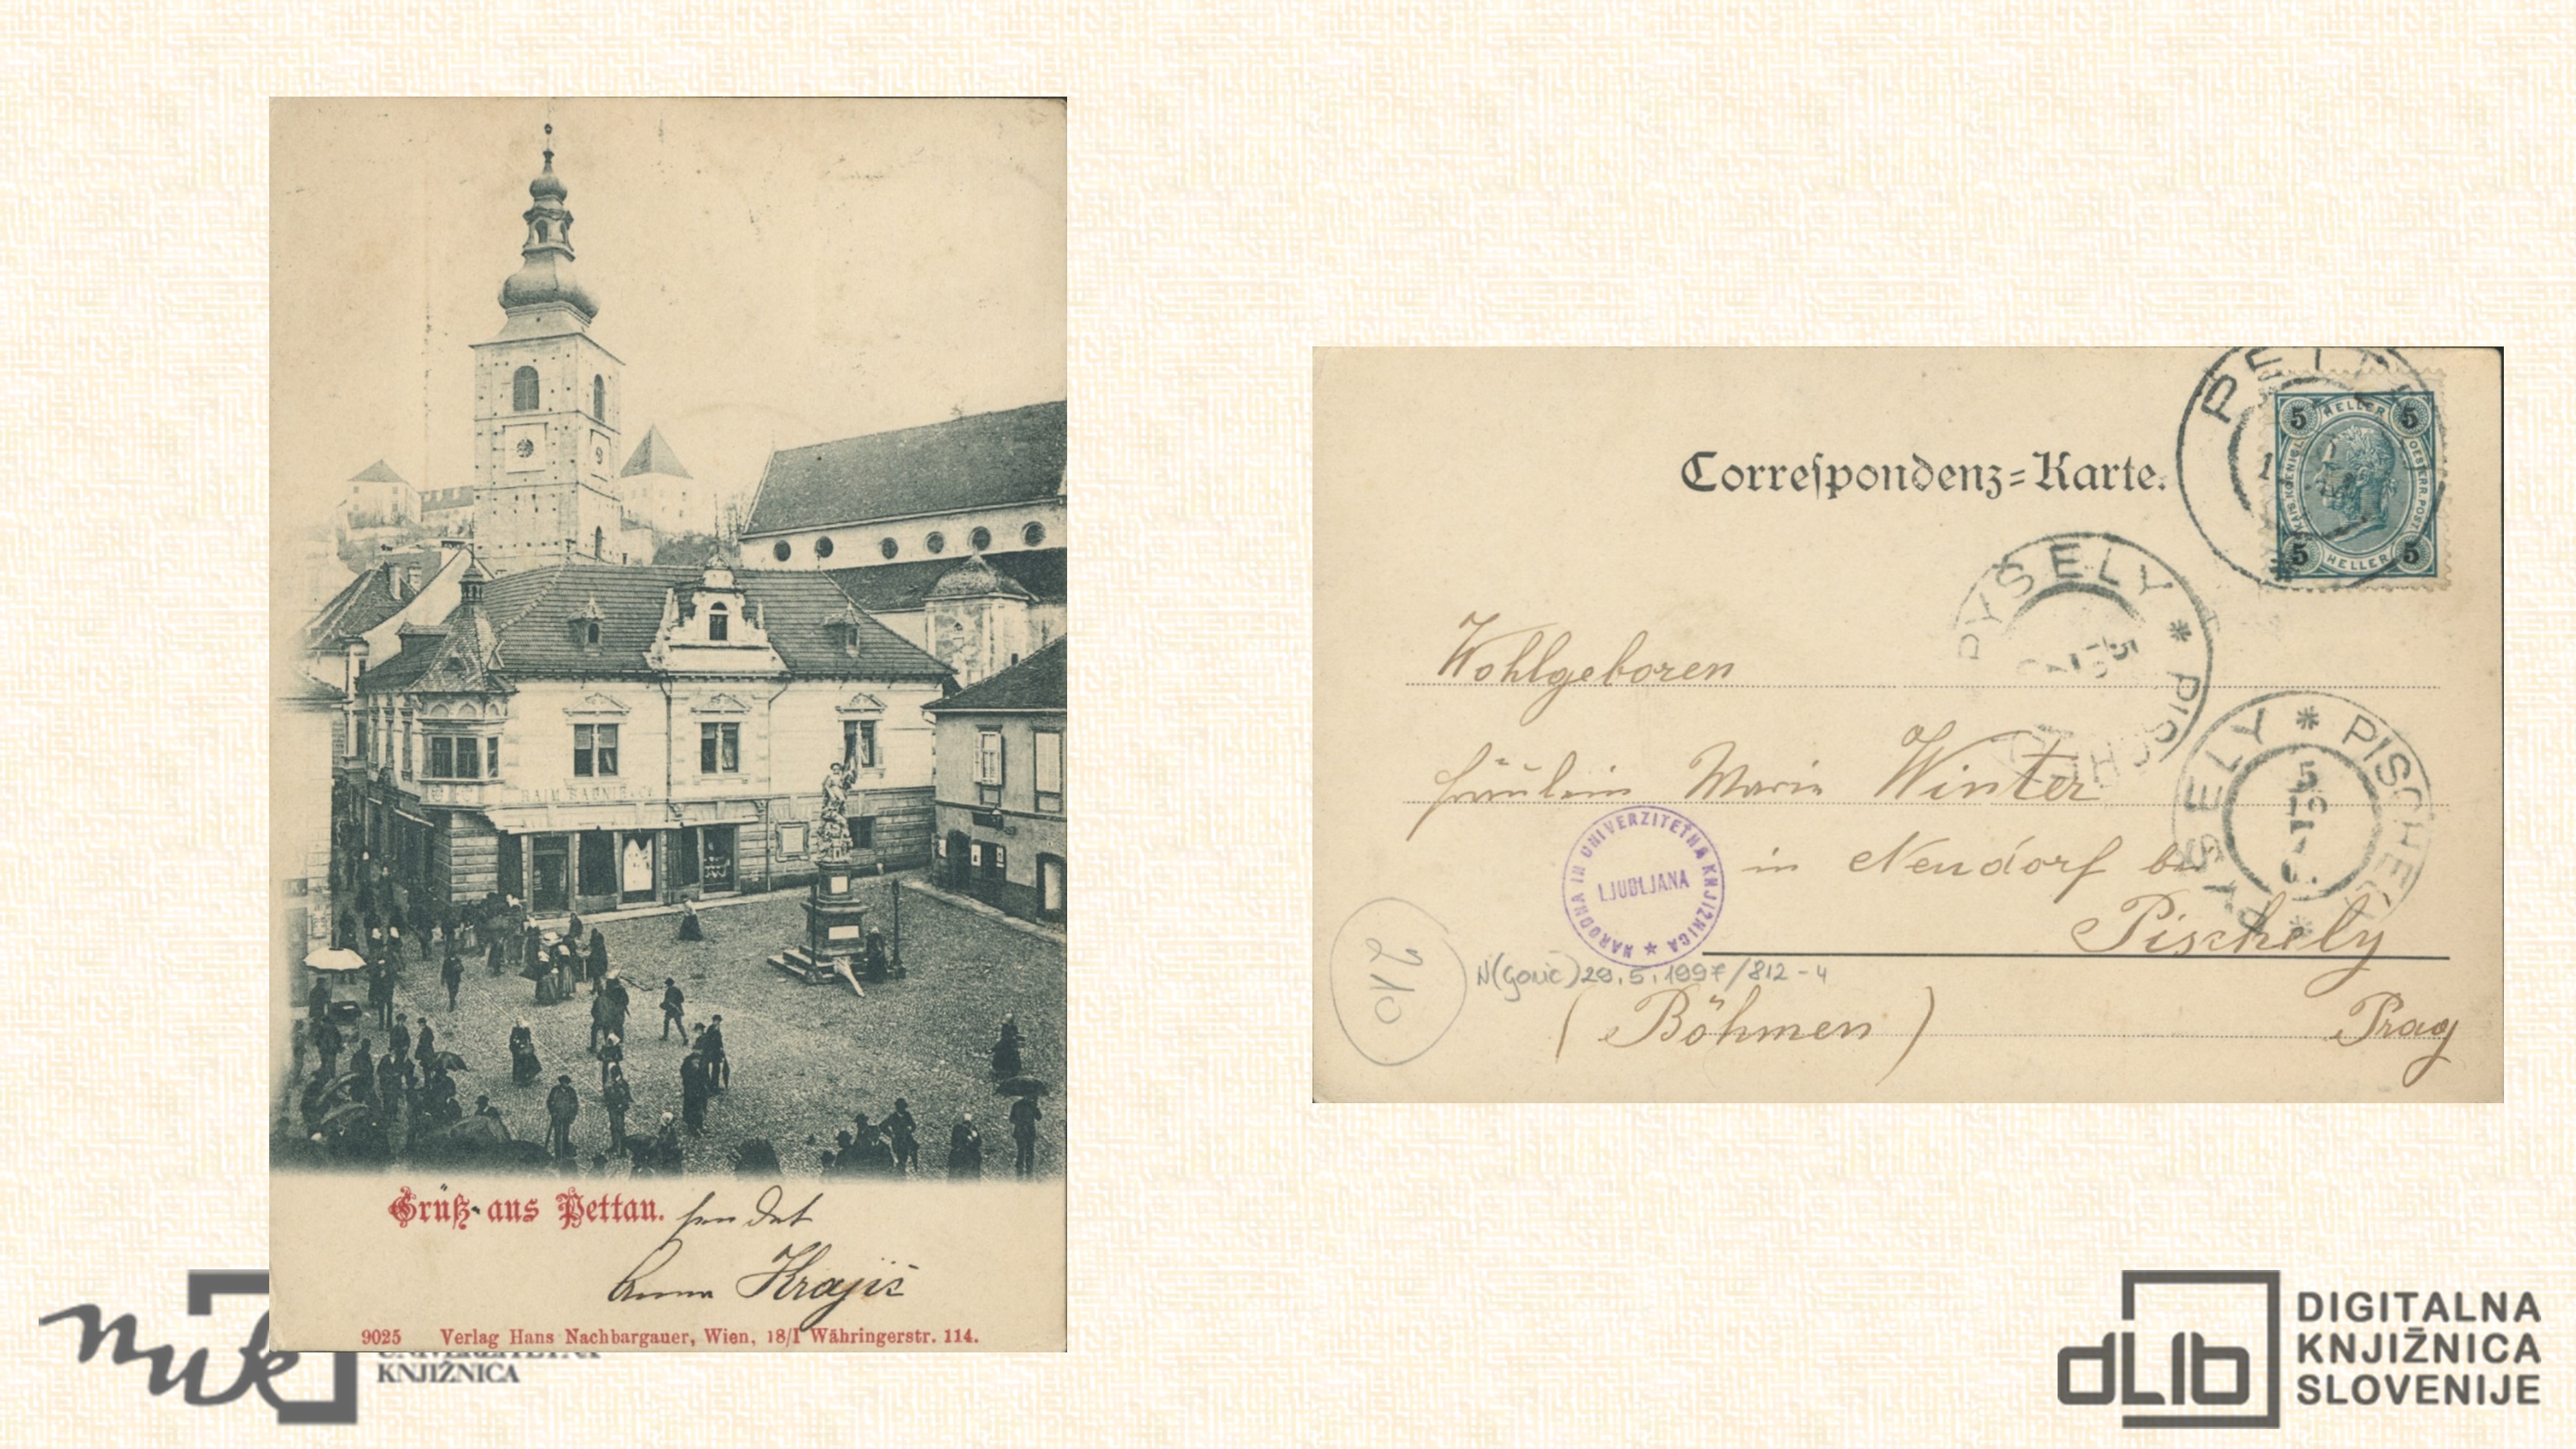 Grüß aus Pettau. sendet
Anna Krajič
9025 Verlag Hans Nachbargauer, Wien, 18/I Währingerstr. 114.
KNJIŽNICA
Correſpondenz=Karte.
PETTAU
5 HELLER 5
KAIS. KOENIGL. OESTERR. POST.
5 HELLER 5
PYSELY * PISCHELY
PYSELY * PISCHELY *
Wohlgeboren
Fräulein Marie Winter
in Neudorf bei
Pischelý
(Böhmen) Prag
NARODNA IN UNIVERZITETNA KNJIŽNICA
LJUBLJANA
210
29.5.1997/812-4
nuk
dLib
DIGITALNA
KNJIŽNICA
SLOVENIJE